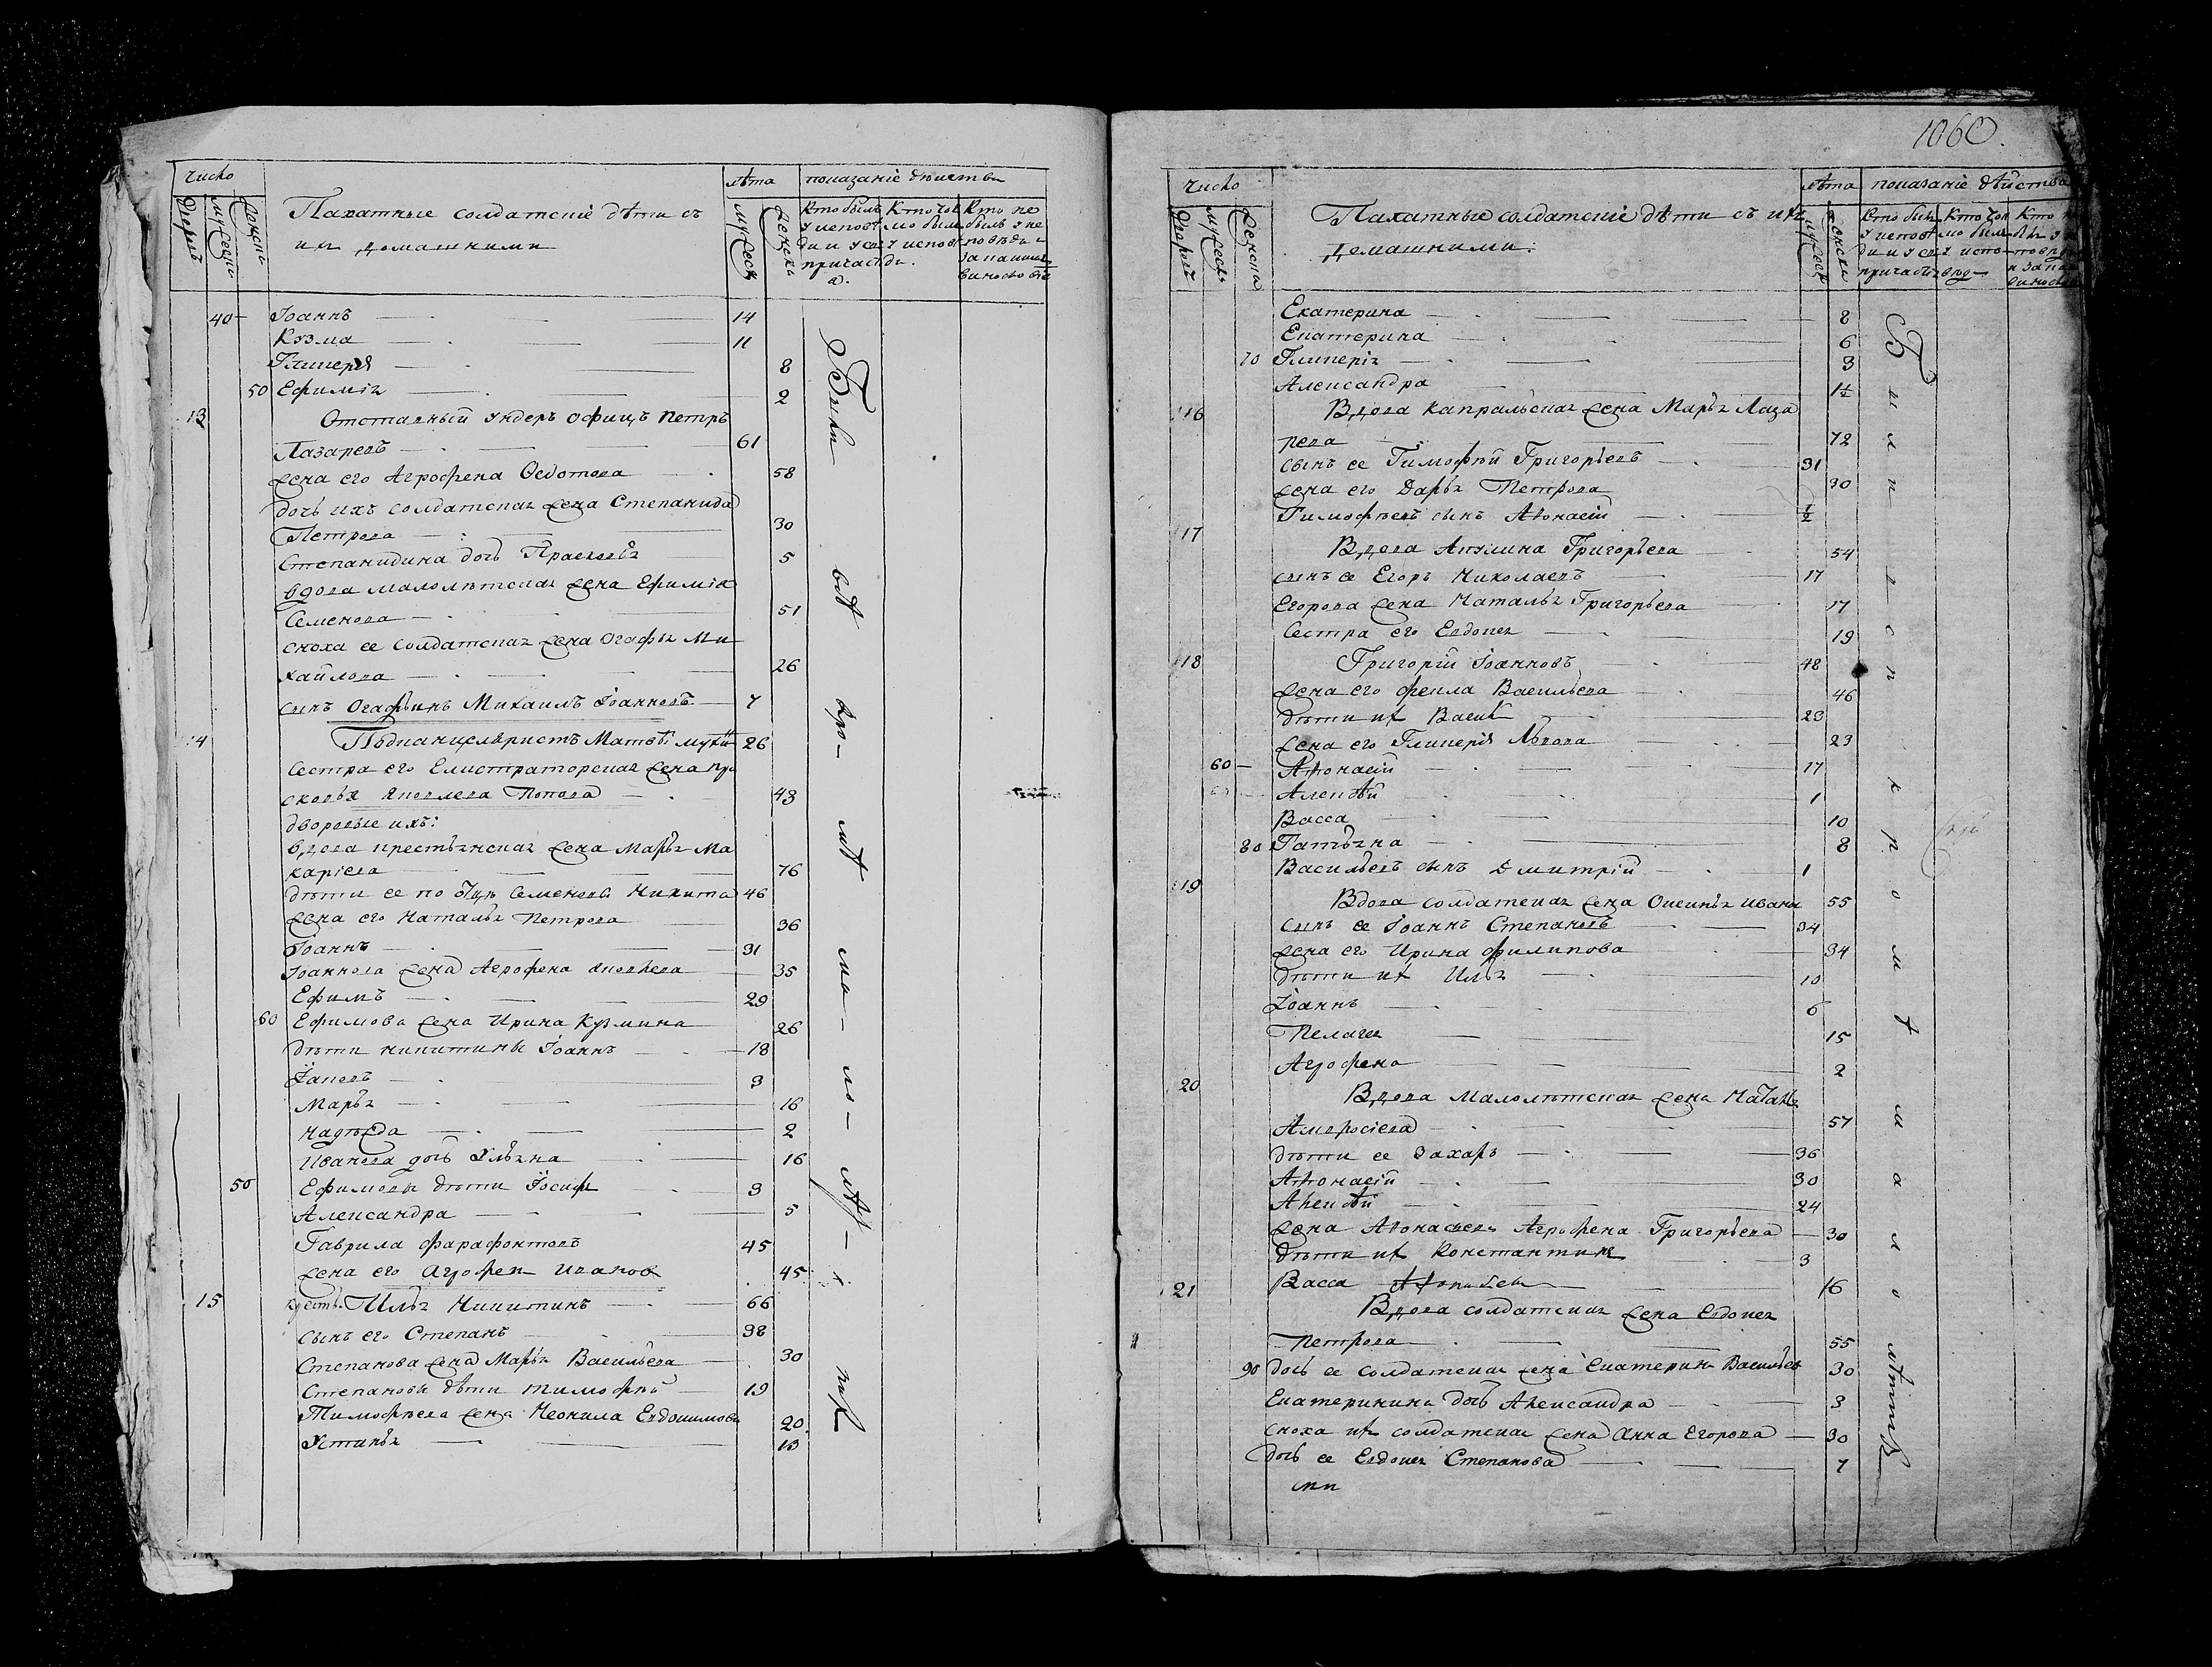 число
лѣта
показаніе дѣиства
дворовъ
мужеска
женска
Пахатные солдатскіе дѣти съ
их домашними
мужеск
женска
Кто былъ
у исповѣ
ди и у св
причаст
а.
Кто тол
мо был
у исповѣ
ди.
Кто не
былъ у ис
повѣди и
40 Іоаннъ 14
Кузма 11
Гликерія 8
50 Ефиміа 2
13 Отставный ундеръ офицъ Петръ
Лазаревъ 61
жена его Агрофена Ѳедотова 58
дочь ихъ солдатская жена Степанида
Петрова 30
Степанидина дочь Прасковья 5
вдова малолѣтская жена Ефимія
Семенова 51
сноха ее солдатская жена Огафья Ми
хайлова 26
сынъ Огафьинъ Михаилъ Іоанновъ 7
14 Подканцеляристъ Матвѣ 26
Сестра его Елистраторская жена Пра
сковья Яковлева Попова 43
дворовые ихъ:
вдова крестьянская жена Марья Ма
каріева 76
дѣти ее по Семеновы Никита 46
жена его Наталья Петрова 36
Іоаннъ 31
Іоаннова жена Агрофена Яковлева 35
Ефимъ 29
60 Ефимова жена Ирина Кузмина 26
дѣти никитины Іоаннъ 18
Іаковъ 3
Марья 16
Надѣжда 2
Иванова дочь Ульяна 16
50 Ефимовы дѣти Іосифъ 3
Александра 5
Гаврила Фарафонтовъ 45
жена его Агрофен Иванов 45
15 крест. Илья Никитинъ 66
сынъ его Степанъ 38
Степанова жена Марья Васильева 30
Степановы дѣти Тимофѣй 19
Тимофѣева жена Неонила Евдокимова 20
Устинья 13
Были
вѣ
мѣ
ма
ло
лѣ
1060.
число
лѣта
показаніе дѣйства
дворовъ
мужеска
женска
Пахатные солдатскіе дѣти съ ихъ
домашними.
мужеск
женска
Кто былъ
у исповѣ
ди и у св
причаст
Кто тол
мо былъ
у испо
вѣд
Екатерина 8
Екатерина 6
70 Гликерія 3
Александра 1½
16 Вдова капральская жена Марья Лаза
рева 72
сынъ ее Тимофѣй Григорьевъ 31
жена его Дарья Петрова 30
Тимофѣевъ сынъ Афонасій ½
17 Вдова Акулина Григорьева 54
сынъ ее Егоръ Николаевъ 17
Егорова жена Наталья Григорьева 17
Сестра его Евдокея 19
18 Григорій Іоанновъ 48
жена его Фекла Васильева 46
дѣти их Васил 23
жена его Гликерія Львова 23
60 Афонасій 17
Алексѣй 1
Васса 10
80 Татьяна 8
Васильевъ сынъ Дмитрій 1
19 Вдова солдатская жена Оксинья Ивана 55
сынъ ее Іоаннъ Степановъ 34
жена его Ирина Филипова 34
дѣти их Илья 10
Іоаннъ 6
Пелагея 15
Агрофена 2
20 Вдова малолѣтская жена Наталья
Амвросіева 57
дѣти ее Захаръ 36
Афонасій 30
Алексѣй 24
жена Афонасьева Агрофена Григорьева 30
дѣти их Константинъ 3
21 Васса 16
Вдова солдатская жена Евдокея
Петрова 55
90 дочь ее солдатская жена Екатерина Васильев 30
Екатеринина дочь Александра 3
сноха их солдатская жена Анна Егорова 30
дочь ее Евдокея Степанова 7
Были все кромѣ малолѣтнѣ